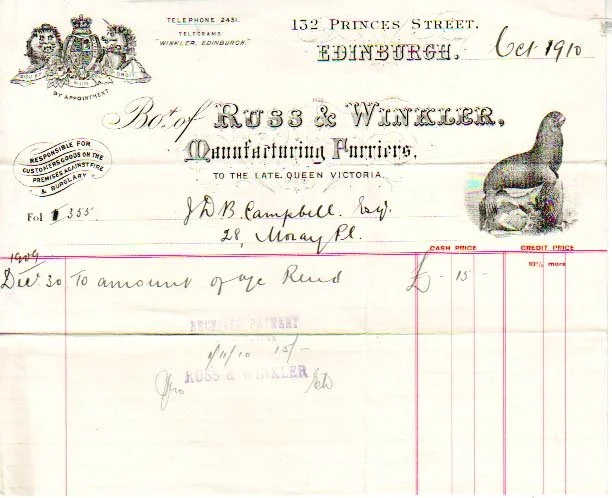 TELEPHONE 2431.
TELEGRAMS
"WINKLER, EDINBURGH."
132 PRINCES STREET,
EDINBURGH,
Oct 1910
DIEU ET MON DROIT
BY APPOINTMENT.
Bot. of RUSS & WINKLER,
Manufacturing Furriers,
TO THE LATE QUEEN VICTORIA.
RESPONSIBLE FOR
CUSTOMERS GOODS ON THE
PREMISES AGAINST FIRE
& BURGLARY
Fol 355
J D B. Campbell. Esq.
28, Moray Pl.
CASH PRICE
CREDIT PRICE
10% more
1909
Decr 30 To amount of a/c Rend £ - 15 -
RECEIVED PAYMENT
1/11/10 15/-
Pro RUSS & WINKLER